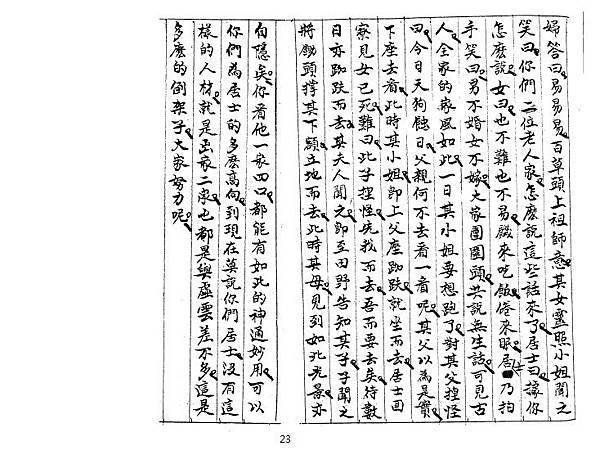 婦答曰易易易百草頭上祖師意其女靈照小姐聞之
笑曰你們二位老人家怎麼說這些話來了居士曰據你
怎麼說女曰也不難也不易飢來吃飯倦來眠居士乃拍
手笑曰男不婚女不嫁大家團圞頭共說無生話可見古
人全家的家風如此一日其小姐要想跑了對其父捏怪
曰今日天狗蝕日父親何不去看一看呢其父以為是實
下座去看此時其小姐即上父座跏趺就坐而去居士回
寮見女已死難曰此子捏怪先我而去吾而要去矣待數
日亦跏趺而去其夫人聞之即至田野告知其子子聞之
將鋤頭撐其下頦立地而去此時其母見到如此光景亦
自隱矣你看他一家四口都能有如此的神通妙用可以
你們為居士的多麼高尚到現在莫說你們居士沒有這
樣的人材就是出家二眾也都是與虛雲差不多這是
多麼的倒架子大家努力呢
23